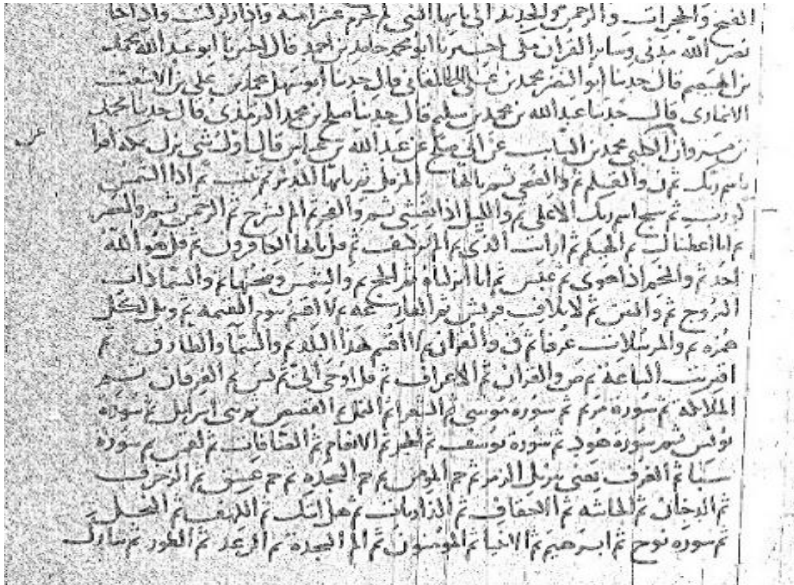 الفتح والحجرات والرحمن والحديد الى يايها النبي لم تحرم عشر امنه واذا زلزلت واذا جا
نصر الله مدنى وساير القران مكى ابو محمد حامد بن احمد قال اخبرنا ابو عبد الله محمد
بن الهيصم قال حدثنا ابو النضر محمد بن على الطالقانى قال حدثنا ابو سهل محمد بن على بن الاشعث
الانصارى قال حدثنا عبد الله بن محمد بن سليم قال حدثنا صلح بن محمد الترمذى قال حدثنا محمد
بن مروان الكلبى محمد بن السايب عن ابى صلح عن عبد الله بن عباس قال اول شى نزل بمكه اقرا
باسم ربك ثم ن والقلم ثم والضحى ثم يايها المزمل ثم يايها المدثر ثم تبت ثم اذا الشمس
كورت ثم سبح اسم ربك الاعلى ثم والليل اذا يغشى ثم والفجر ثم الم نشرح ثم الرحمن ثم والعصر
ثم انا اعطيناك ثم الهيكم ثم ارايت الذى ثم الم تر كيف ثم قل يايها الكافرون ثم قل هو الله
احد ثم والنجم اذا هوى ثم عبس ثم انا انزلناه ثم والشمس وضحيها ثم والسما ذات
البروج ثم والتين ثم لايلاف قريش ثم القارعه ثم لا اقسم بيوم القيمه ثم ويل لكل
همزه ثم والمرسلات عرفا ثم ق والقران ثم لا اقسم بهذا البلد ثم والسما والطارق ثم
اقتربت الساعه ثم ص والقران ثم الاعراف ثم قل اوحى الى ثم يس ثم الفرقان ثم
الملائكه ثم سوره مريم ثم سوره موسى ثم الشعرا ثم النمل ثم القصص ثم بنى اسرايل ثم سوره
يونس ثم سوره هود ثم سوره يوسف ثم الحجر ثم الانعام ثم الصافات ثم لقمن ثم سوره
سبا ثم الغرف يعنى تنزيل الزمر ثم حم المومن ثم حم السجده ثم حم عسق ثم الزخرف
ثم الدخان ثم الجاثيه ثم الاحقاف ثم الذاريات ثم هل اتيك ثم الكهف ثم النحل
ثم سوره نوح ثم ابرهيم ثم الانبيا ثم المومنون ثم الم السجدة ثم الرعد ثم الطور ثم تبارك